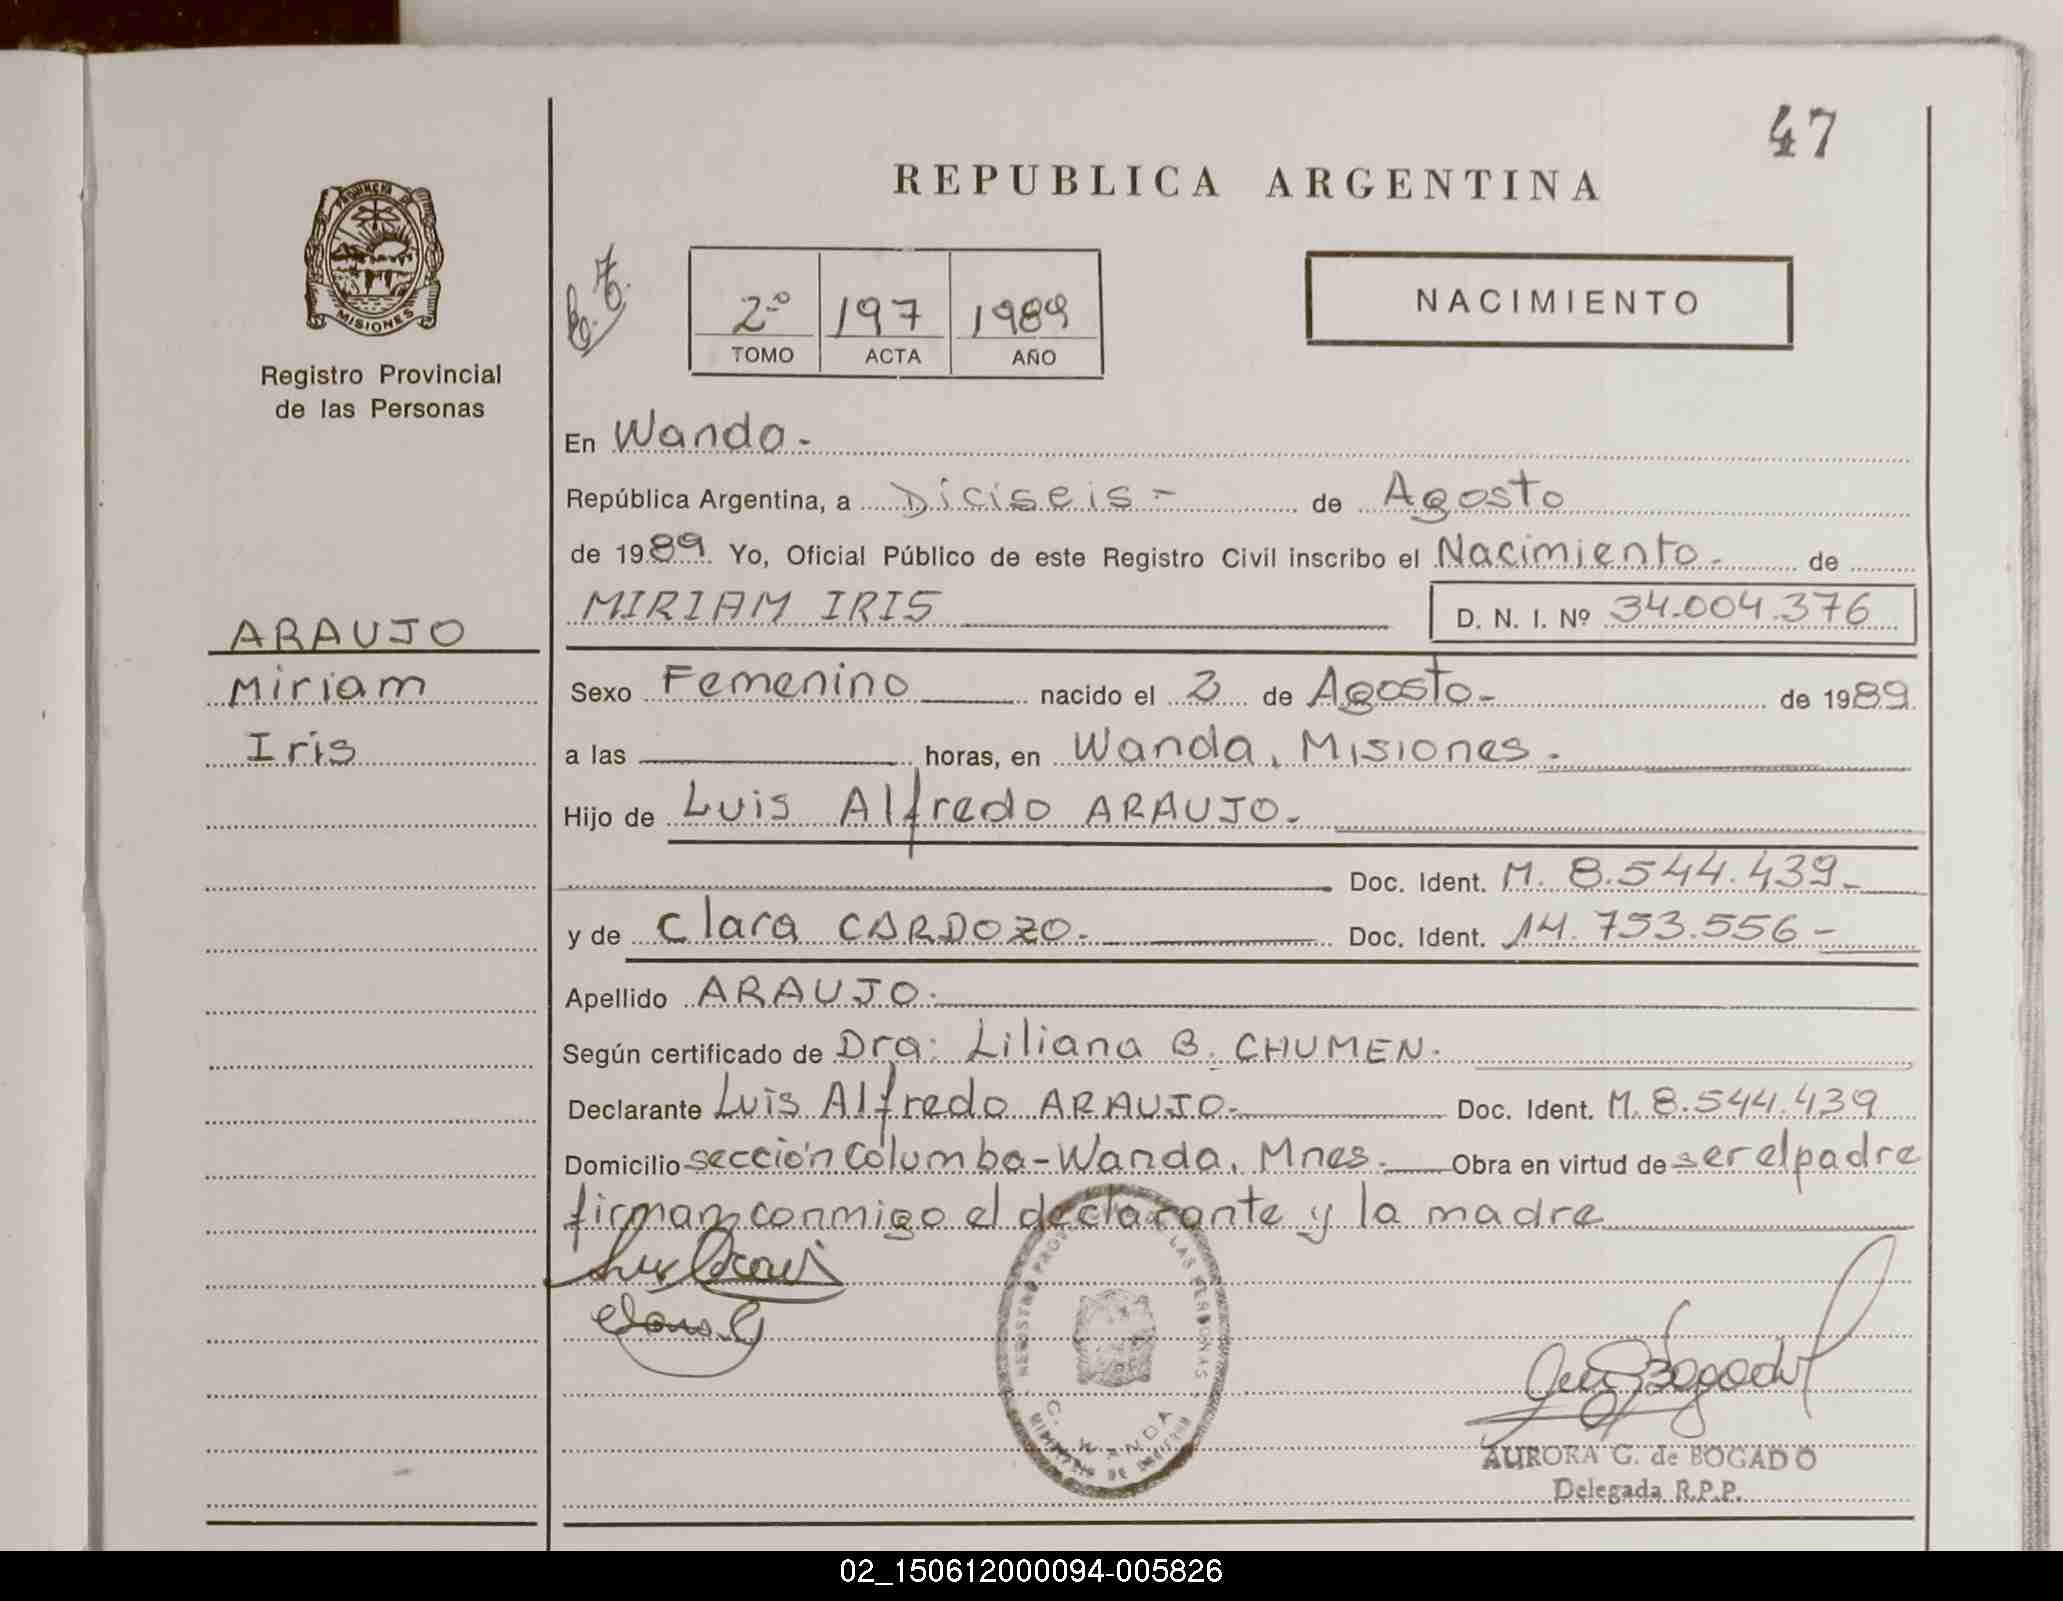 47
REPUBLICA ARGENTINA
PROVINCIA DE
MISIONES
Registro Provincial
de las Personas
2º 197 1989
TOMO ACTA AÑO
NACIMIENTO
En Wanda.-
República Argentina, a Diciseis - de Agosto
de 1989 Yo, Oficial Público de este Registro Civil inscribo el Nacimiento. de
MIRIAM IRIS D. N. I. Nº 34.004.376
ARAUJO
Miriam
Iris
Sexo Femenino nacido el 2 de Agosto.- de 1989
a las horas, en Wanda, Misiones.
Hijo de Luis Alfredo ARAUJO.
Doc. Ident. M. 8.544.439-
y de Clara CARDOZO. Doc. Ident. 14.753.556-
Apellido ARAUJO.
Según certificado de Dra: Liliana B. CHUMEN.
Declarante Luis Alfredo ARAUJO.- Doc. Ident. M. 8.544.439
Domicilio sección Columba-Wanda, Mnes. Obra en virtud de ser el padre
firman conmigo el declarante y la madre
REGISTRO PROVINCIAL DE LAS PERSONAS
C. WANDA
MINISTERIO DE GOBIERNO
AURORA G. de BOGADO
Delegada R.P.P.
02_150612000094-005826